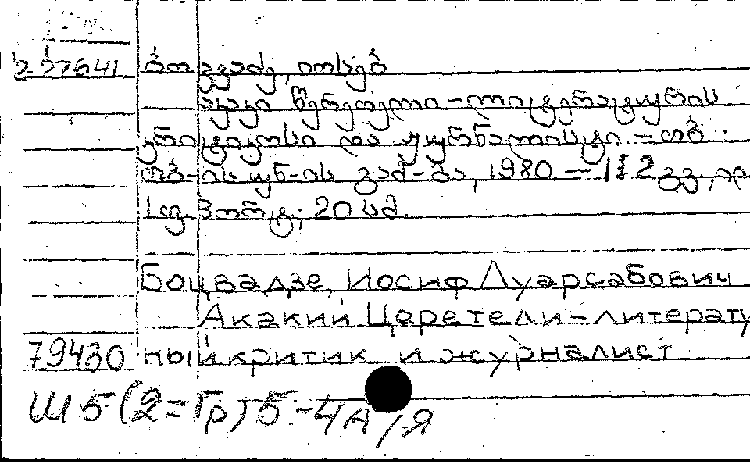 2-37641 ბოცვაძე, იოსებ
აკაკი წერეთელი - ლიტერატურის
კრიტიკოსი და ჟურნალისტი. - თბ.:
თბ-ის უნ-ის გამ-ბა, 1980 - 112 გვ.,
1 ფ. პორტ.; 20 სმ.
Боцвадзе, Иосиф Луарсабович
Акакий Церетели-литератур
79430 ный критик и журналист
Ш5(2=Гр)5-4я/Я